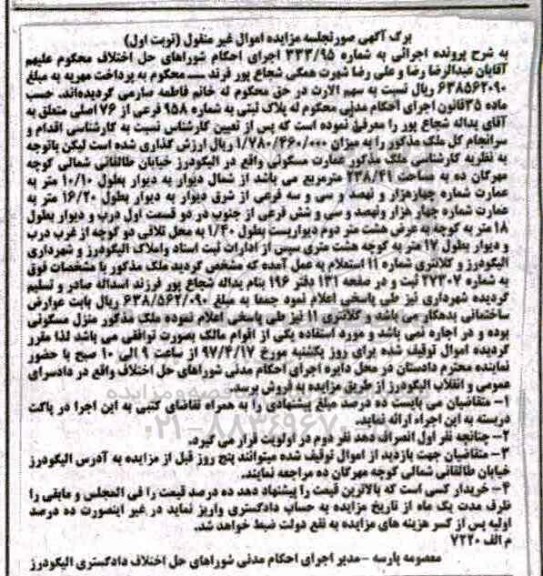 برگ آگهی صورتجلسه مزایده اموال غیر منقول (نوبت اول)
به شرح پرونده اجرائی به شماره ۳۳۳/۹۵ اجرای احکام شوراهای حل اختلاف محکوم علیهم
آقایان عبدالرضا رضا و علی رضا شهرت همگی شجاع پور فرزند ــــ محکوم به پرداخت مهریه به مبلغ
۶۳۸۵۶۲۰۹۰ ریال نسبت به سهم الارث در حق محکوم له خانم فاطمه صارمی گردیده‌اند. حسب
ماده ۳۵قانون اجرای احکام مدنی محکوم له پلاک ثبتی به شماره ۹۵۸ فرعی از ۷۶ اصلی متعلق به
آقای یداله شجاع پور را معرفی نموده است که پس از تعیین کارشناس نسبت به کارشناسی اقدام و
سرانجام کل ملک مذکور را به میزان ۱/۷۸۰/۲۶۰/۰۰۰ ریال ارزش گذاری شده است لیکن باتوجه
به نظریه کارشناسی ملک مذکور عمارت مسکونی واقع در الیگودرز خیابان طالقانی شمالی کوچه
مهرگان ده به مساحت ۲۳۸/۴۹ مترمربع می باشد از شمال دیوار به دیوار بطول ۱۰/۱۰ متر به
عمارت شماره چهارهزار و نهصد و سی و سه فرعی از شرق دیوار به دیوار بطول ۱۶/۲۰ متر به
عمارت شماره چهار هزار ونهصد و سی و شش فرعی از جنوب در دو قسمت اول درب و دیوار بطول
۱۸ متر به کوچه به عرض هشت متر دوم دیواریست بطول ۱/۴۰ به محل تلاقی دو کوچه از غرب درب
و دیوار بطول ۱۷ متر به کوچه هشت متری سپس از ادارات ثبت اسناد واملاک الیگودرز و شهرداری
الیگودرز و کلانتری شماره ۱۱ استعلام به عمل آمده که مشخص گردید ملک مذکور با مشخصات فوق
به شماره ۲۷۳۰۷ ثبت و در صفحه ۱۳۱ دفتر ۱۹۶ بنام یداله شجاع پور فرزند اسداله صادر و تسلیم
گردیده شهرداری نیز طی پاسخی اعلام نمود جمعا به مبلغ ۶۳۸/۵۶۲/۰۹۰ ریال بابت عوارض
ساختمانی بدهکار می باشد و کلانتری ۱۱ نیز طی پاسخی اعلام نموده ملک مذکور منزل مسکونی
بوده و در اجاره نمی باشد و مورد استفاده یکی از اقوام مالک بصورت توافقی می باشد لذا مقرر
گردیده اموال توقیف شده برای روز یکشنبه مورخ ۹۷/۴/۱۷ از ساعت ۹ الی ۱۰ صبح با حضور
نماینده محترم دادستان در محل دایره اجرای احکام مدنی شوراهای حل اختلاف واقع در دادسرای
عمومی و انقلاب الیگودرز از طریق مزایده به فروش برسد.
۱– متقاضیان می بایست ده درصد مبلغ پیشنهادی را به همراه تقاضای کتبی به این اجرا در پاکت
دربسته به این اجراء ارائه نماید.
۲– چنانچه نفر اول انصراف دهد نفر دوم در اولویت قرار می گیرد.
۳– متقاضیان جهت بازدید از اموال توقیف شده میتوانند پنج روز قبل از مزایده به آدرس الیگودرز
خیابان طالقانی شمالی کوچه مهرگان ده مراجعه نمایند.
۴– خریدار کسی است که بالاترین قیمت را پیشنهاد دهد ده درصد قیمت را فی المجلس و مابقی را
ظرف مدت یک ماه از تاریخ مزایده به حساب دادگستری واریز نماید در غیر اینصورت ده درصد
اولیه پس از کسر هزینه های مزایده به نفع دولت ضبط خواهد شد.
م الف ۷۲۲۰
معصومه پارسه –مدیر اجرای احکام مدنی شوراهای حل اختلاف دادگستری الیگودرز